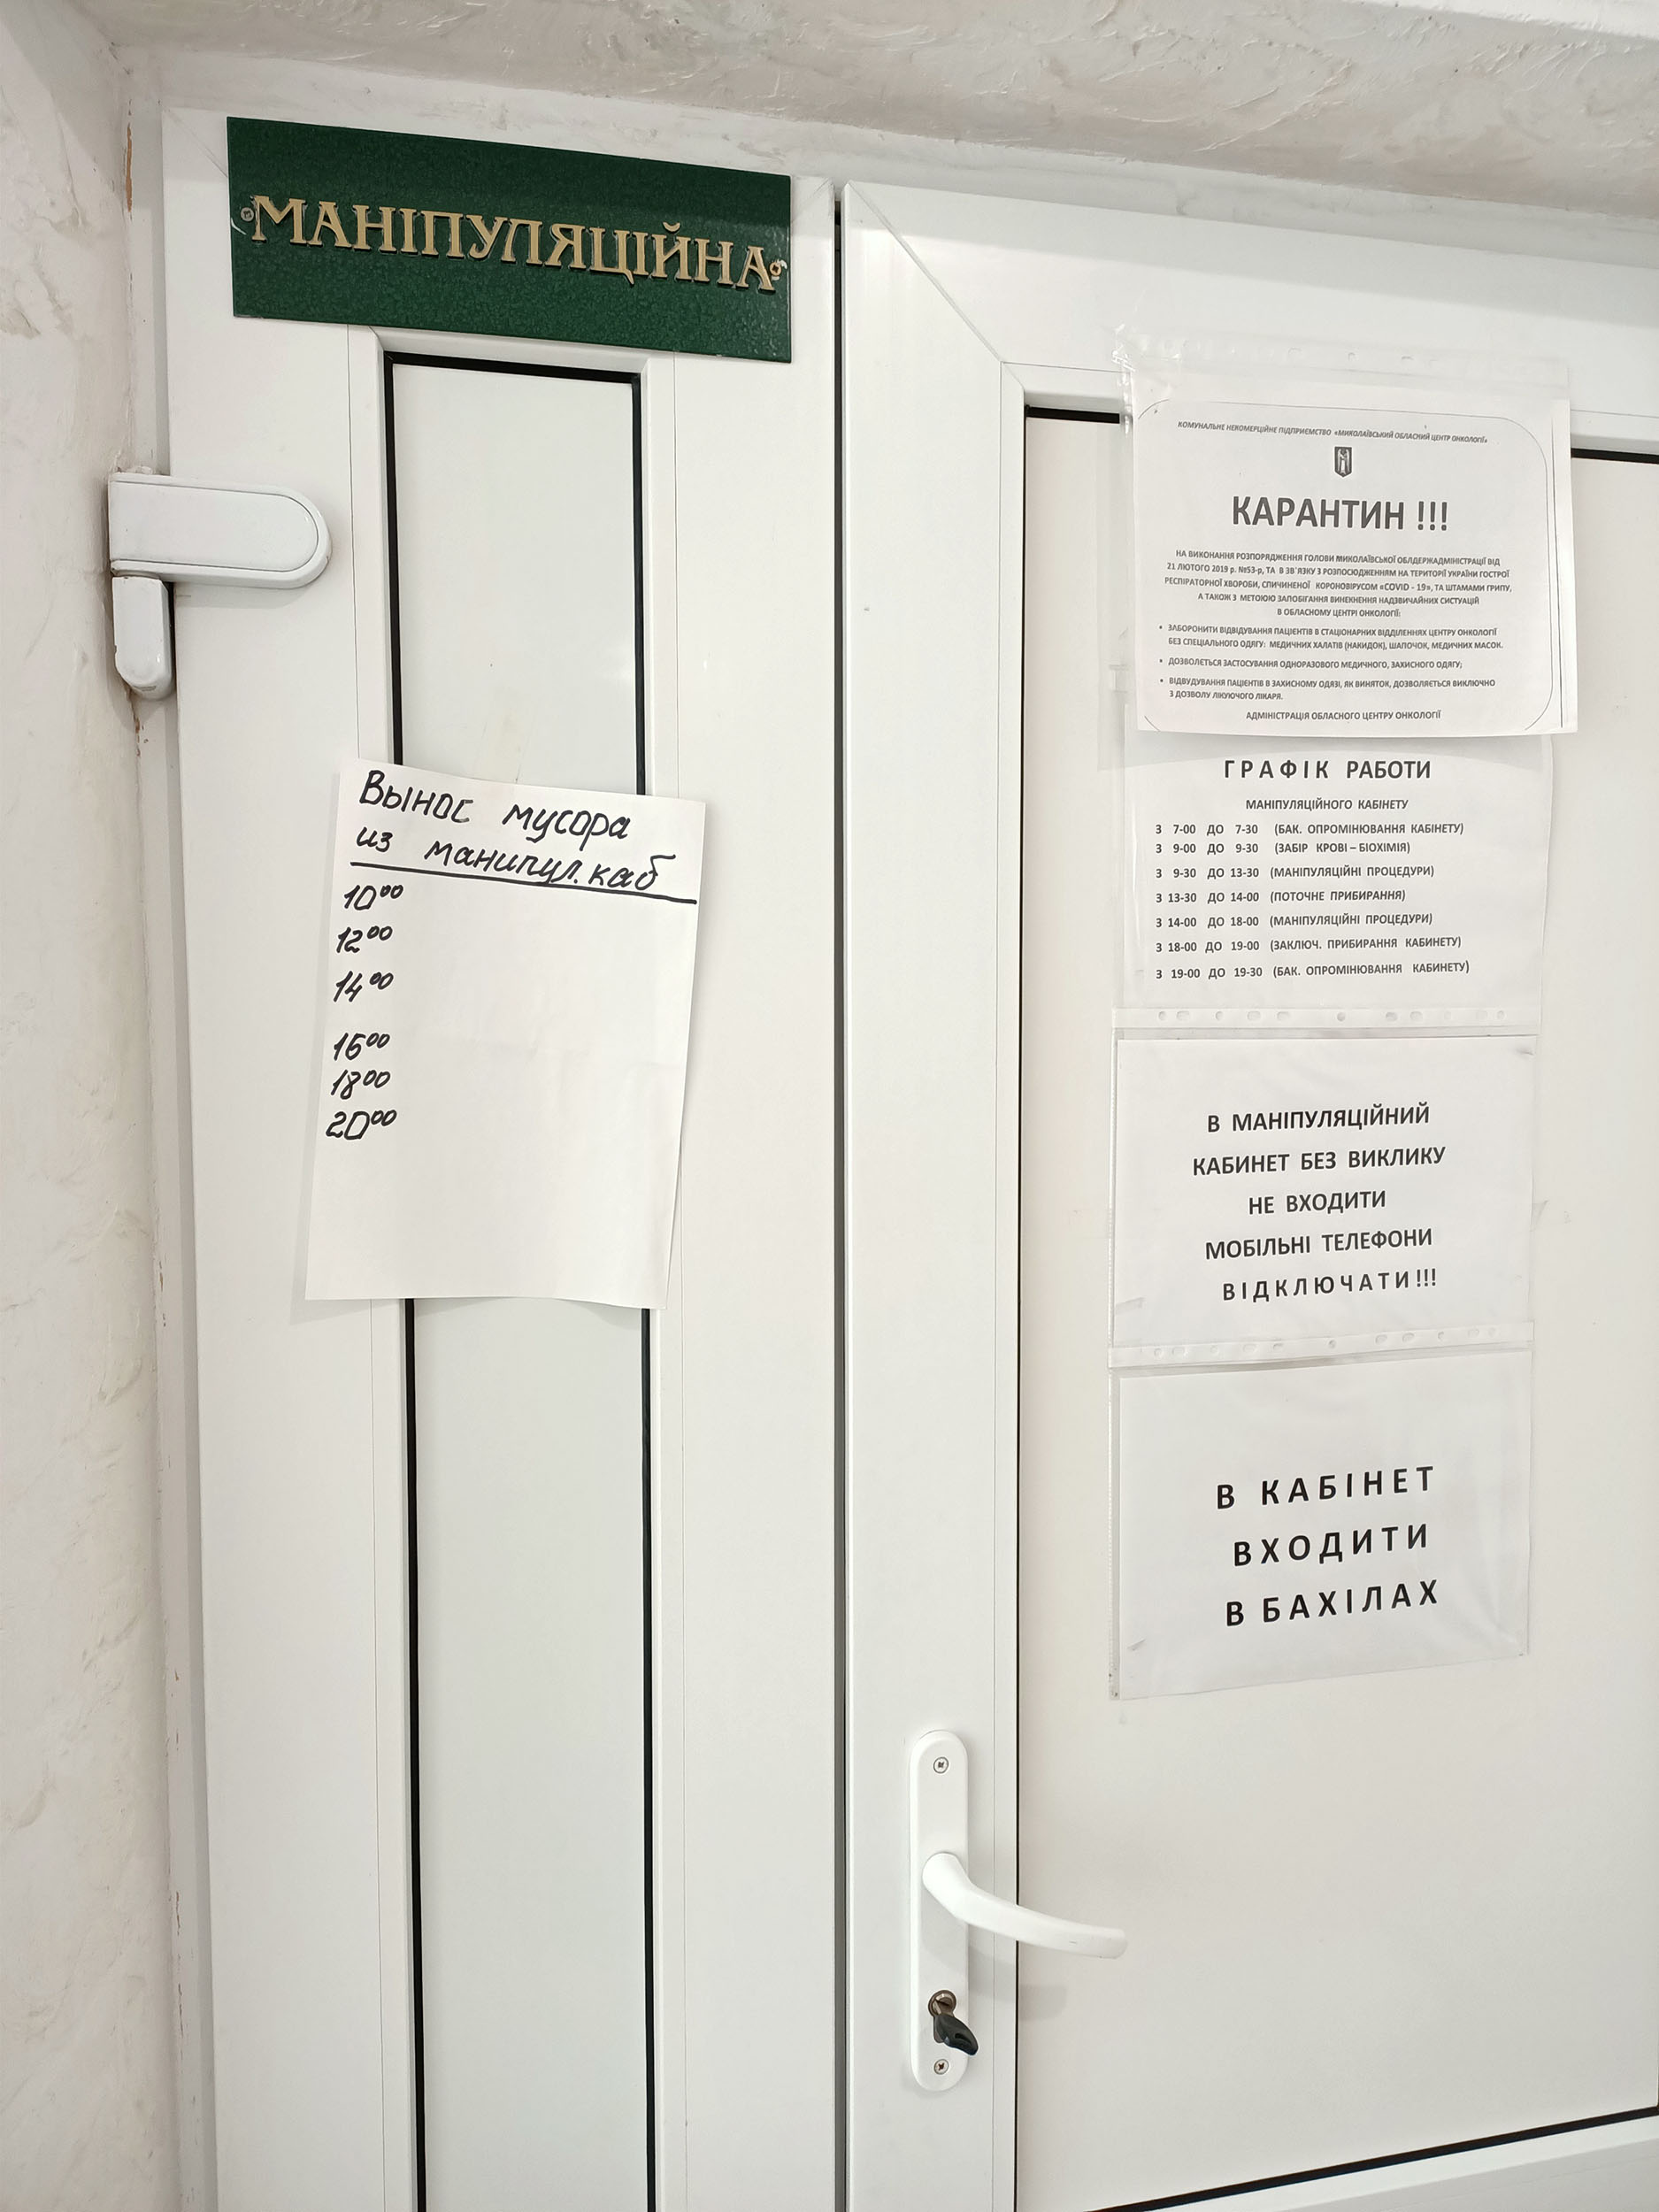 МАНІПУЛЯЦІЙНА
Вынос мусора
из манипул. каб
10⁰⁰
12⁰⁰
14⁰⁰
16⁰⁰
18⁰⁰
20⁰⁰
КОМУНАЛЬНЕ НЕКОМЕРЦІЙНЕ ПІДПРИЄМСТВО «МИКОЛАЇВСЬКИЙ ОБЛАСНИЙ ЦЕНТР ОНКОЛОГІЇ»
КАРАНТИН !!!
НА ВИКОНАННЯ РОЗПОРЯДЖЕННЯ ГОЛОВИ МИКОЛАЇВСЬКОЇ ОБЛДЕРЖАДМІНІСТРАЦІЇ ВІД
21 ЛЮТОГО 2019 р. №53-р, ТА В ЗВ'ЯЗКУ З РОЗПОСЮДЖЕННЯМ НА ТЕРИТОРІЇ УКРАЇНИ ГОСТРОЇ
РЕСПІРАТОРНОЇ ХВОРОБИ, СПИЧИНЕНОЇ КОРОНОВІРУСОМ «COVID - 19», ТА ШТАМАМИ ГРИПУ,
А ТАКОЖ З МЕТОІОЮ ЗАПОБІГАННЯ ВИНЕКНЕННЯ НАДЗВИЧАЙНИХ СИСТУАЦІЙ
В ОБЛАСНОМУ ЦЕНТРІ ОНКОЛОГІЇ:
• ЗАБОРОНИТИ ВІДВІДУВАННЯ ПАЦІЄНТІВ В СТАЦІОНАРНИХ ВІДДІЛЕННЯХ ЦЕНТРУ ОНКОЛОГІЇ
БЕЗ СПЕЦІАЛЬНОГО ОДЯГУ: МЕДИЧНИХ ХАЛАТІВ (НАКИДОК), ШАПОЧОК, МЕДИЧНИХ МАСОК.
• ДОЗВОЛЯЄТЬСЯ ЗАСТОСУВАННЯ ОДНОРАЗОВОГО МЕДИЧНОГО, ЗАХИСНОГО ОДЯГУ;
• ВІДВУДУВАННЯ ПАЦІЄНТІВ В ЗАХИСНОМУ ОДЯЗІ, ЯК ВИНЯТОК, ДОЗВОЛЯЄТЬСЯ ВИКЛЮЧНО
З ДОЗВОЛУ ЛІКУЮЧОГО ЛІКАРЯ.
АДМІНІСТРАЦІЯ ОБЛАСНОГО ЦЕНТРУ ОНКОЛОГІЇ
ГРАФІК РАБОТИ
МАНІПУЛЯЦІЙНОГО КАБІНЕТУ
З 7-00 ДО 7-30 (БАК. ОПРОМІНЮВАННЯ КАБІНЕТУ)
З 9-00 ДО 9-30 (ЗАБІР КРОВІ – БІОХІМІЯ)
З 9-30 ДО 13-30 (МАНІПУЛЯЦІЙНІ ПРОЦЕДУРИ)
З 13-30 ДО 14-00 (ПОТОЧНЕ ПРИБИРАННЯ)
З 14-00 ДО 18-00 (МАНІПУЛЯЦІЙНІ ПРОЦЕДУРИ)
З 18-00 ДО 19-00 (ЗАКЛЮЧ. ПРИБИРАННЯ КАБИНЕТУ)
З 19-00 ДО 19-30 (БАК. ОПРОМІНЮВАННЯ КАБИНЕТУ)
В МАНІПУЛЯЦІЙНИЙ
КАБИНЕТ БЕЗ ВИКЛИКУ
НЕ ВХОДИТИ
МОБІЛЬНІ ТЕЛЕФОНИ
ВІДКЛЮЧАТИ!!!
В КАБІНЕТ
ВХОДИТИ
В БАХІЛАХ